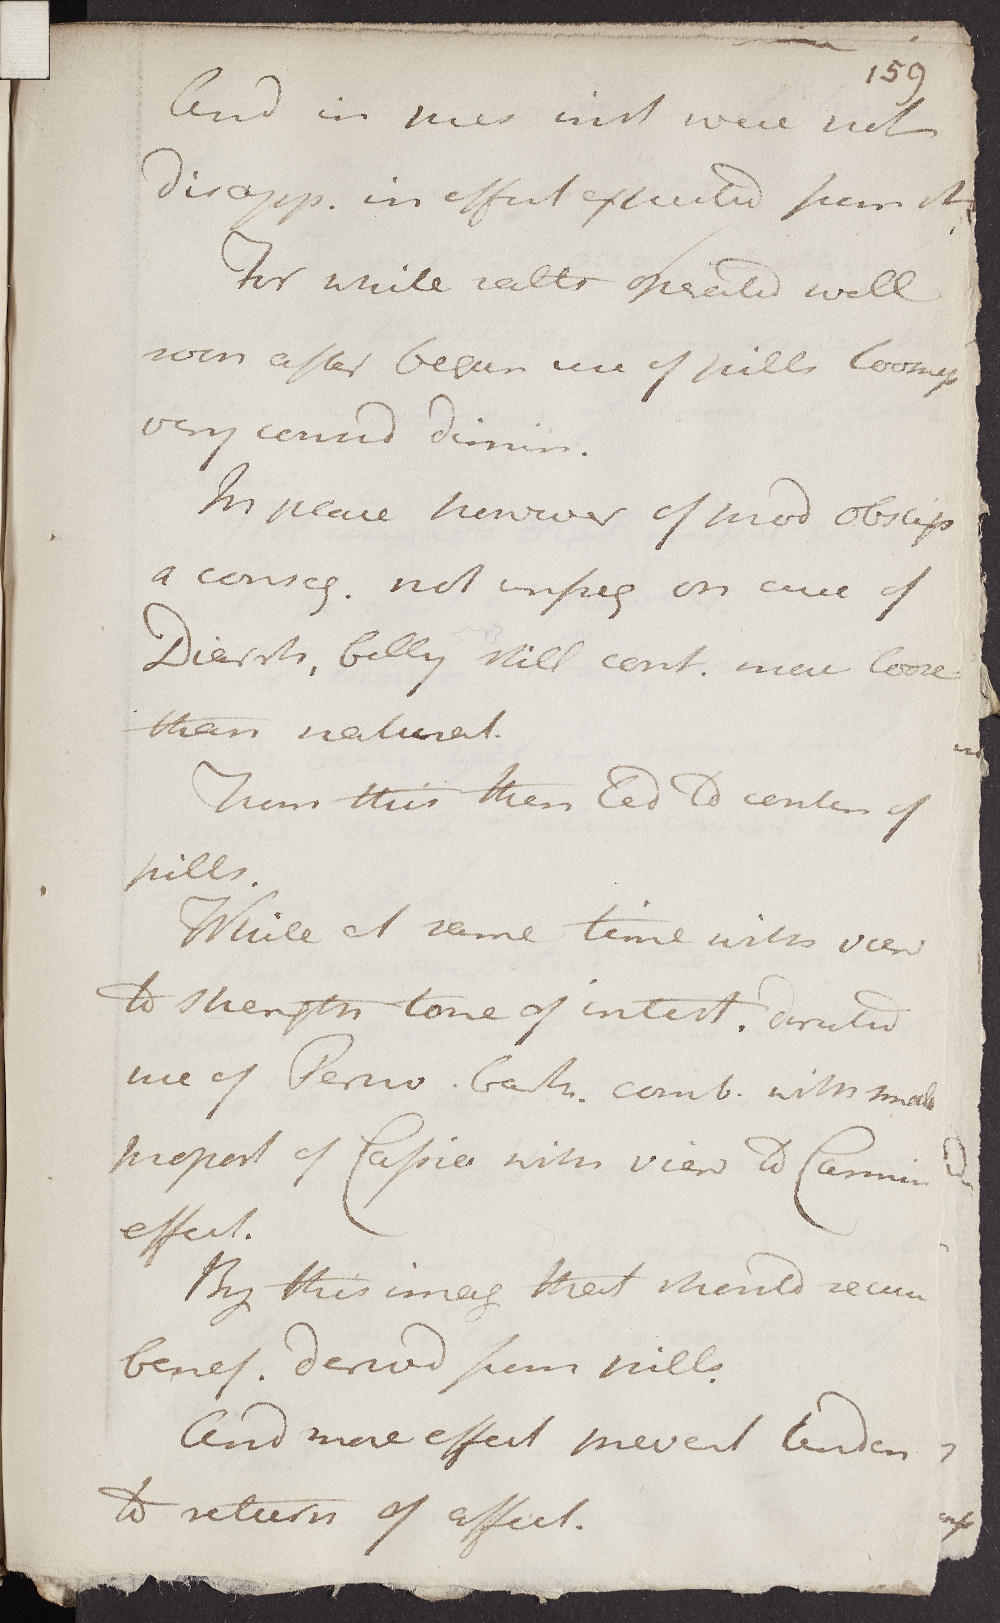 159
And in pres inst were not
disapp. in effect expected from it
For while salts operated well
soon after begun use of pills loosness
very consid dimin.
In place however of mod obstip
a conseq. not unfreq on cure of
Diarrh, belly still cont. more loose
than natural.
From this then led to contin of
pills.
While at same time with view
to strength tone of intest. directed
use of Peruv. bark. comb. with small
proport of Cassia with view to Carmin
effect.
By this imag that should secure
benef. derived from pills.
And more effect prevent tenden
to return of affect.